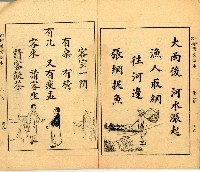 大雨後 河水漲起
漁人取網
往河邊
張網捉魚
客室一間
有桌 有椅
有几 又有痰盂
客來 請客坐
請客飲茶